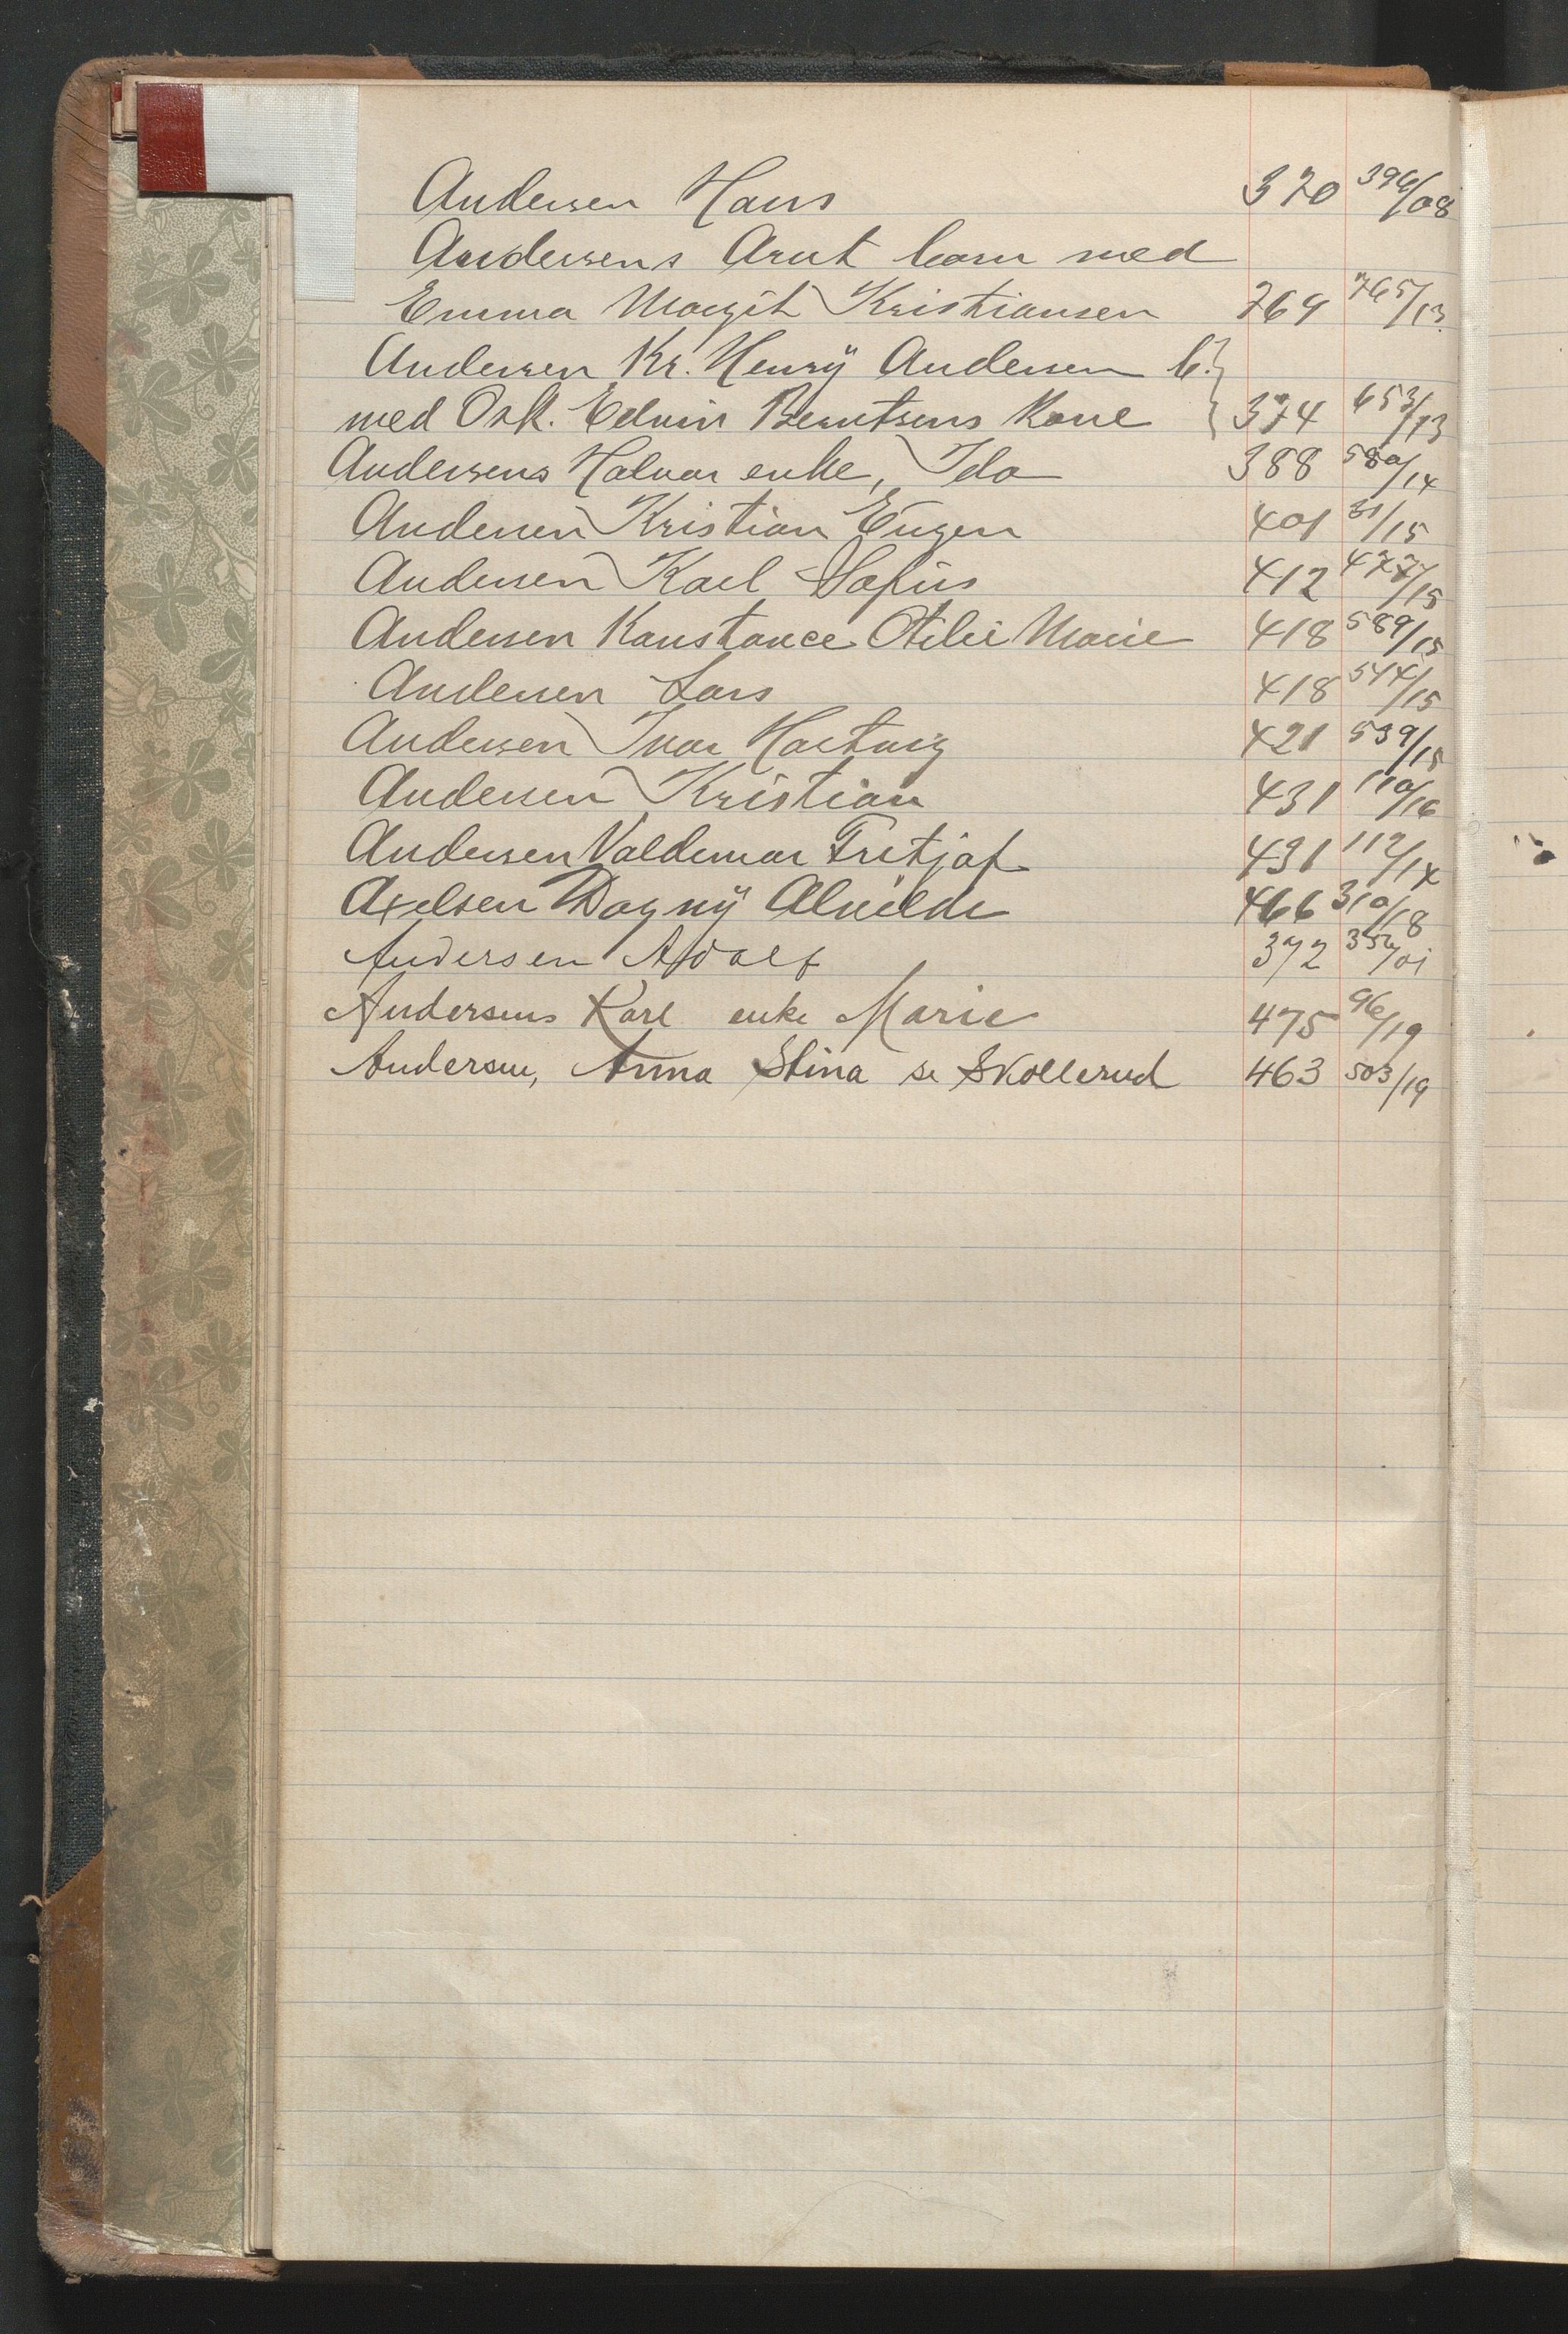 Andersen Hans 370 396/08
Andersens Arnt barn med
Emma Margit Kristiansen 769 765/13
Andersen Kr. Henry Andersen b.
med Osk. Edwin Berntsens Kone 374 653/13
Andersens Halvor enke, Ida 388 580/14
Andersen Kristian Eugen 401 31/15
Andersen Karl Sofus 412 477/15
Andersen Konstance Otilie Marie 418 589/15
Andersen Lars 418 544/15
Andersen Ivar Hartvig 421 539/15
Andersen Kristian 431 110/16
Andersen Valdemar Fritjof 431 112/14
Axelsen Dagny Alvilde 466 310/18
Andersen Adolf 372 352/01
Andersens Karl enke Marie 475 96/19
Andersen, Anna Stina se Skollerud 463 503/19